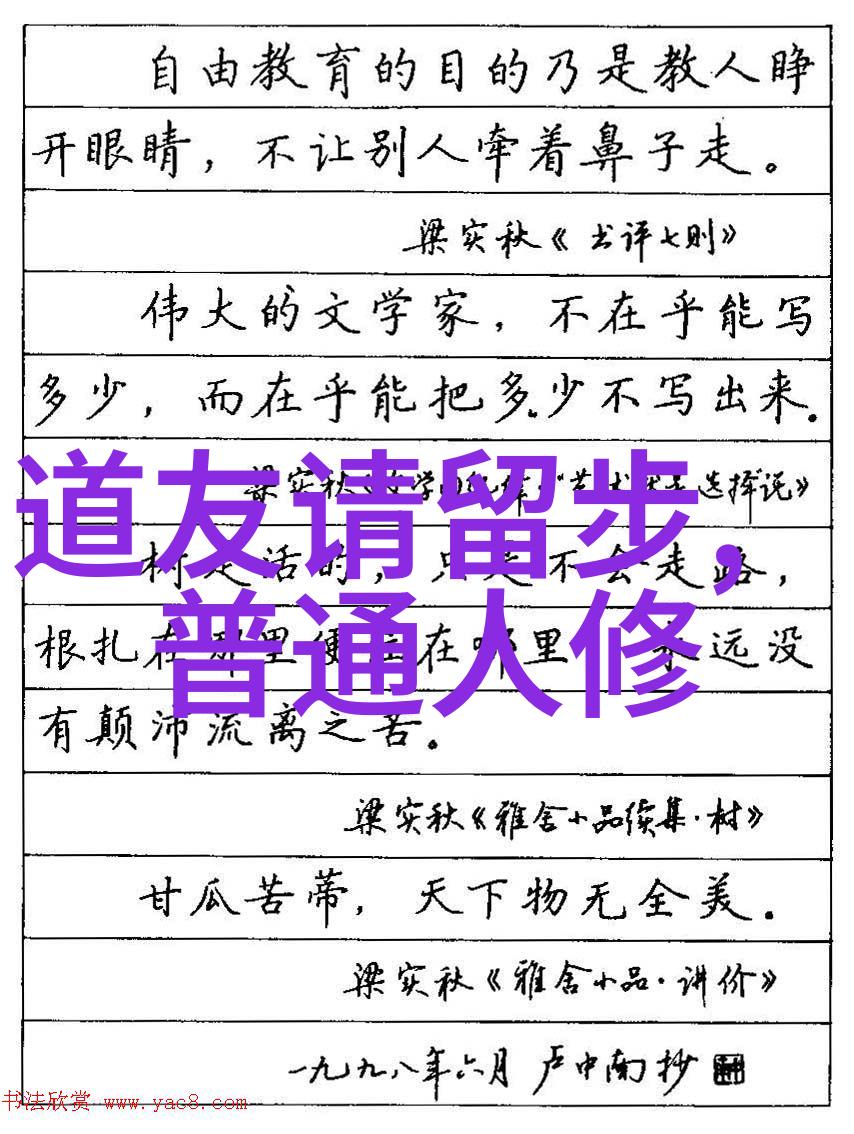 自由教育的目的乃是教人睁
开眼睛，不让别人牵着鼻子走。
梁实秋《书评七则》
伟大的文学家，不在乎能写
多少，而在乎能把多少不写出来。
道友请留步，
普通人修
有颠沛流离之苦。
梁实秋《雅舍小品续集·树》
甘瓜苦蒂，天下物无全美。
梁实秋《雅舍小品·讲价》
一九九八年六月 卢中南抄
书法欣赏 www.yac8.com